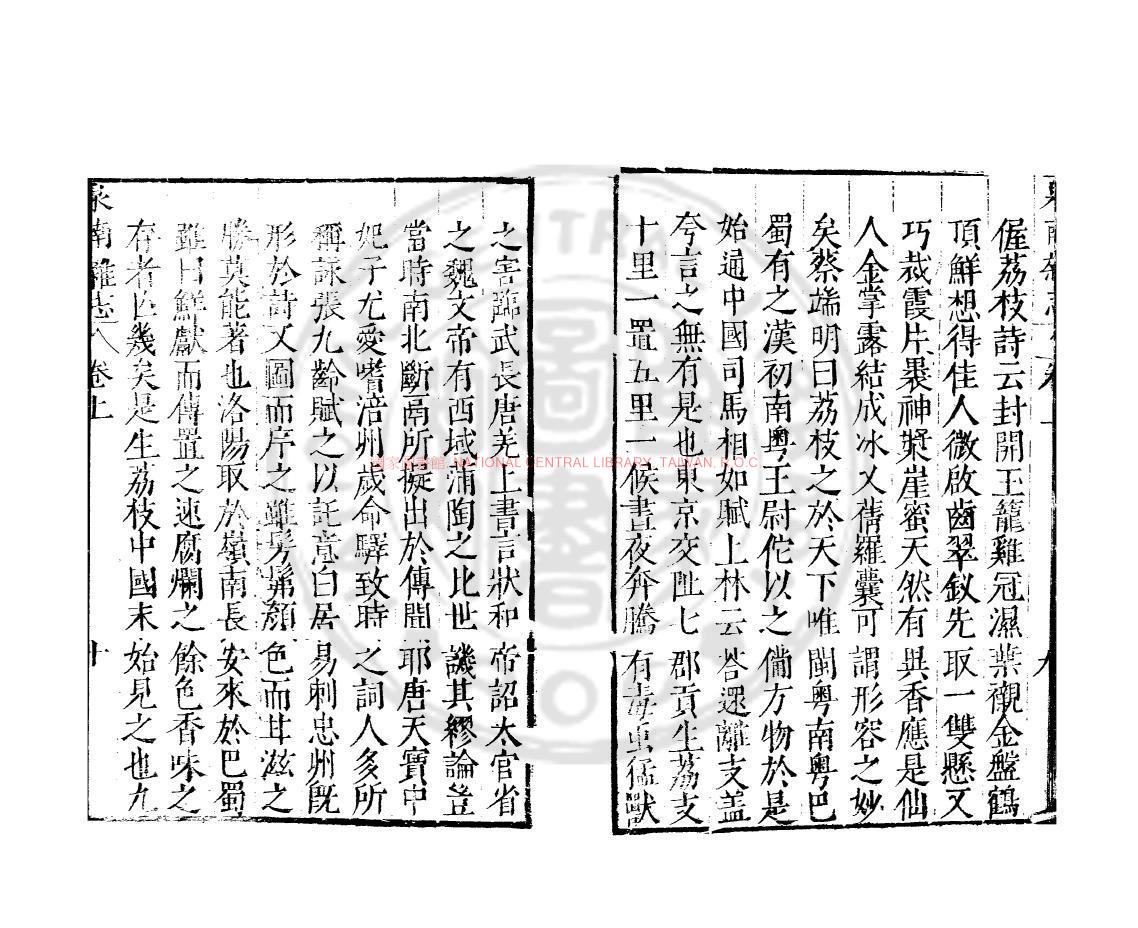 偓荔枝詩云封開玉籠雞冠濕葉襯金盤鶴
頂鮮想得佳人微啟齒翠釵先取一雙懸又
巧裁霞片褁神漿崖蜜天然有異香應是仙
人金掌露結成冰又蒨羅囊可謂形容之妙
矣蔡端明曰荔枝之於天下唯閩粤南粤巴
蜀有之漢初南粤王尉佗以之備方物於是
始通中國司馬相如賦上林云荅遝離支蓋
夸言之無有是也東京交阯七郡貢生荔支
十里一置五里一候晝夜奔騰有毒虫猛獸
九
之害臨武長唐羌上書言狀和帝詔太官省
之魏文帝有西域蒲陶之比世譏其繆論豈
當時南北斷鬲所擬出於傳聞耶唐天寶中
妃子尤愛嗜涪州歲命驛致時之詞人多所
稱詠張九齡賦之以託意白居易刺忠州旣
形於詩又圖而序之雖髣髴顏色而甘滋之
勝莫能著也洛陽取於嶺南長安來於巴蜀
雖曰鮮獻而傳置之速腐爛之餘色香味之
存者亡幾矣是生荔枝中國未始見之也九
泉南雜志 卷上 十
國家圖書館, NATIONAL CENTRAL LIBRARY, TAIWAN, R.O.C